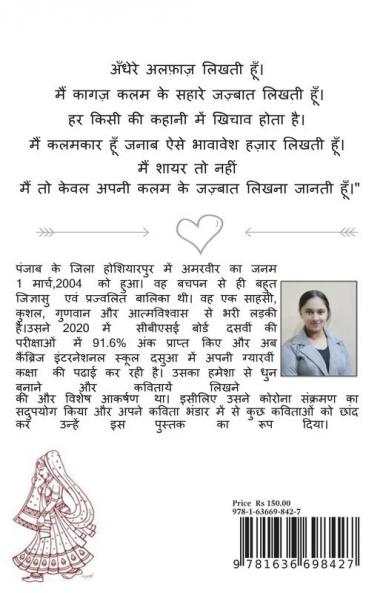 अँधेरे अलफ़ाज़ लिखती हूँ।
मैं कागज़ कलम के सहारे जज़्बात लिखती हूँ।
हर किसी की कहानी में खिचाव होता है।
मैं कलमकार हूँ जनाब ऐसे भावावेश हज़ार लिखती हूँ।
मैं शायर तो नहीं
मैं तो केवल अपनी कलम के जज़्बात लिखना जानती हूँ।"
पंजाब के जिला होशियारपुर में अमरवीर का जनम
1 मार्च,2004 को हुआ। वह बचपन से ही बहुत
जिज्ञासु एवं प्रज्वलित बालिका थी। वह एक साहसी,
कुशल, गुणवान और आत्मविश्वास से भरी लड़की
है।उसने 2020 में सीबीएसई बोर्ड दसवीं की
परीक्षाओं में 91.6% अंक प्राप्त किए और अब
कैंब्रिज इंटरनेशनल स्कूल दसुआ में अपनी ग्यारवीं
कक्षा की पढाई कर रही है। उसका हमेशा से धुन
बनाने और कवितायें लिखने
की और विशेष आकर्षण था। इसीलिए उसने कोरोना संक्रमण का
सदुपयोग किया और अपने कविता भंडार में से कुछ कविताओं को छांद
कर उन्हें इस पुस्तक का रूप दिया।
Price Rs 150.00
978-1-63669-842-7
9 781636 698427